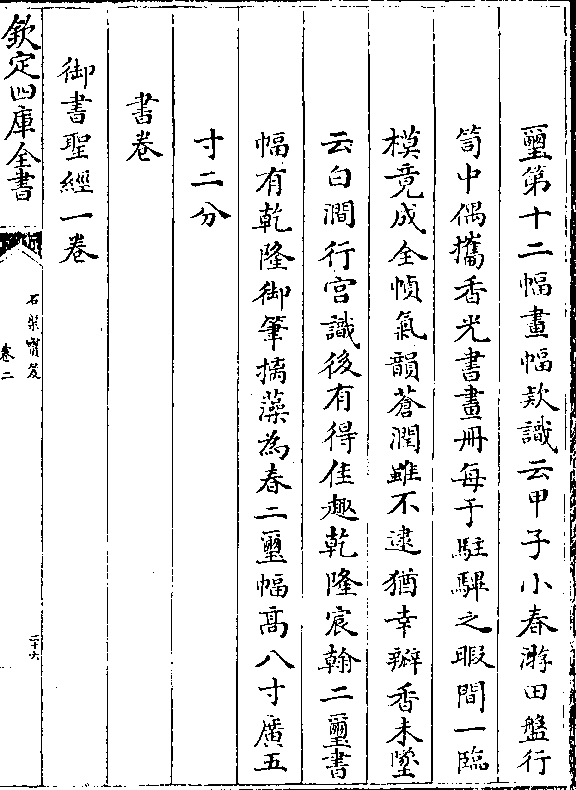 璽第十二幅畫幅欵識云甲子小春游田盤行
笥中偶攜香光書畫冊每于駐蹕之暇間一臨
模竟成全幀氣韻蒼潤雖不逮猶幸瓣香未墬
云白澗行宫識後有得佳趣乾隆宸翰二璽書
幅有乾隆御筆摛藻為春二璽幅高八寸廣五
寸二分
書卷
御書聖經一卷
欽定四庫全書
石渠寳笈
卷二
二十六